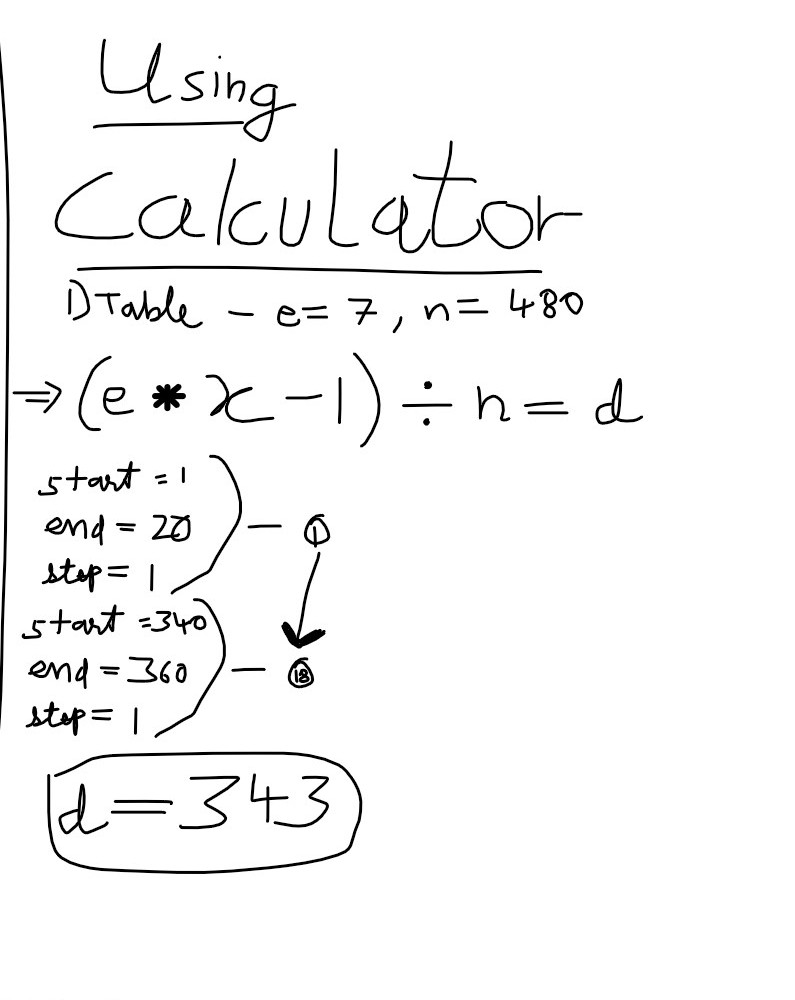 Using
Calculator
1) Table - e= 7, n= 480
⇒ (e * x - 1) ÷ n = d
start = 1
end = 20
step = 1
- ①
start = 340
end = 360
step = 1
- ⑱
d = 343